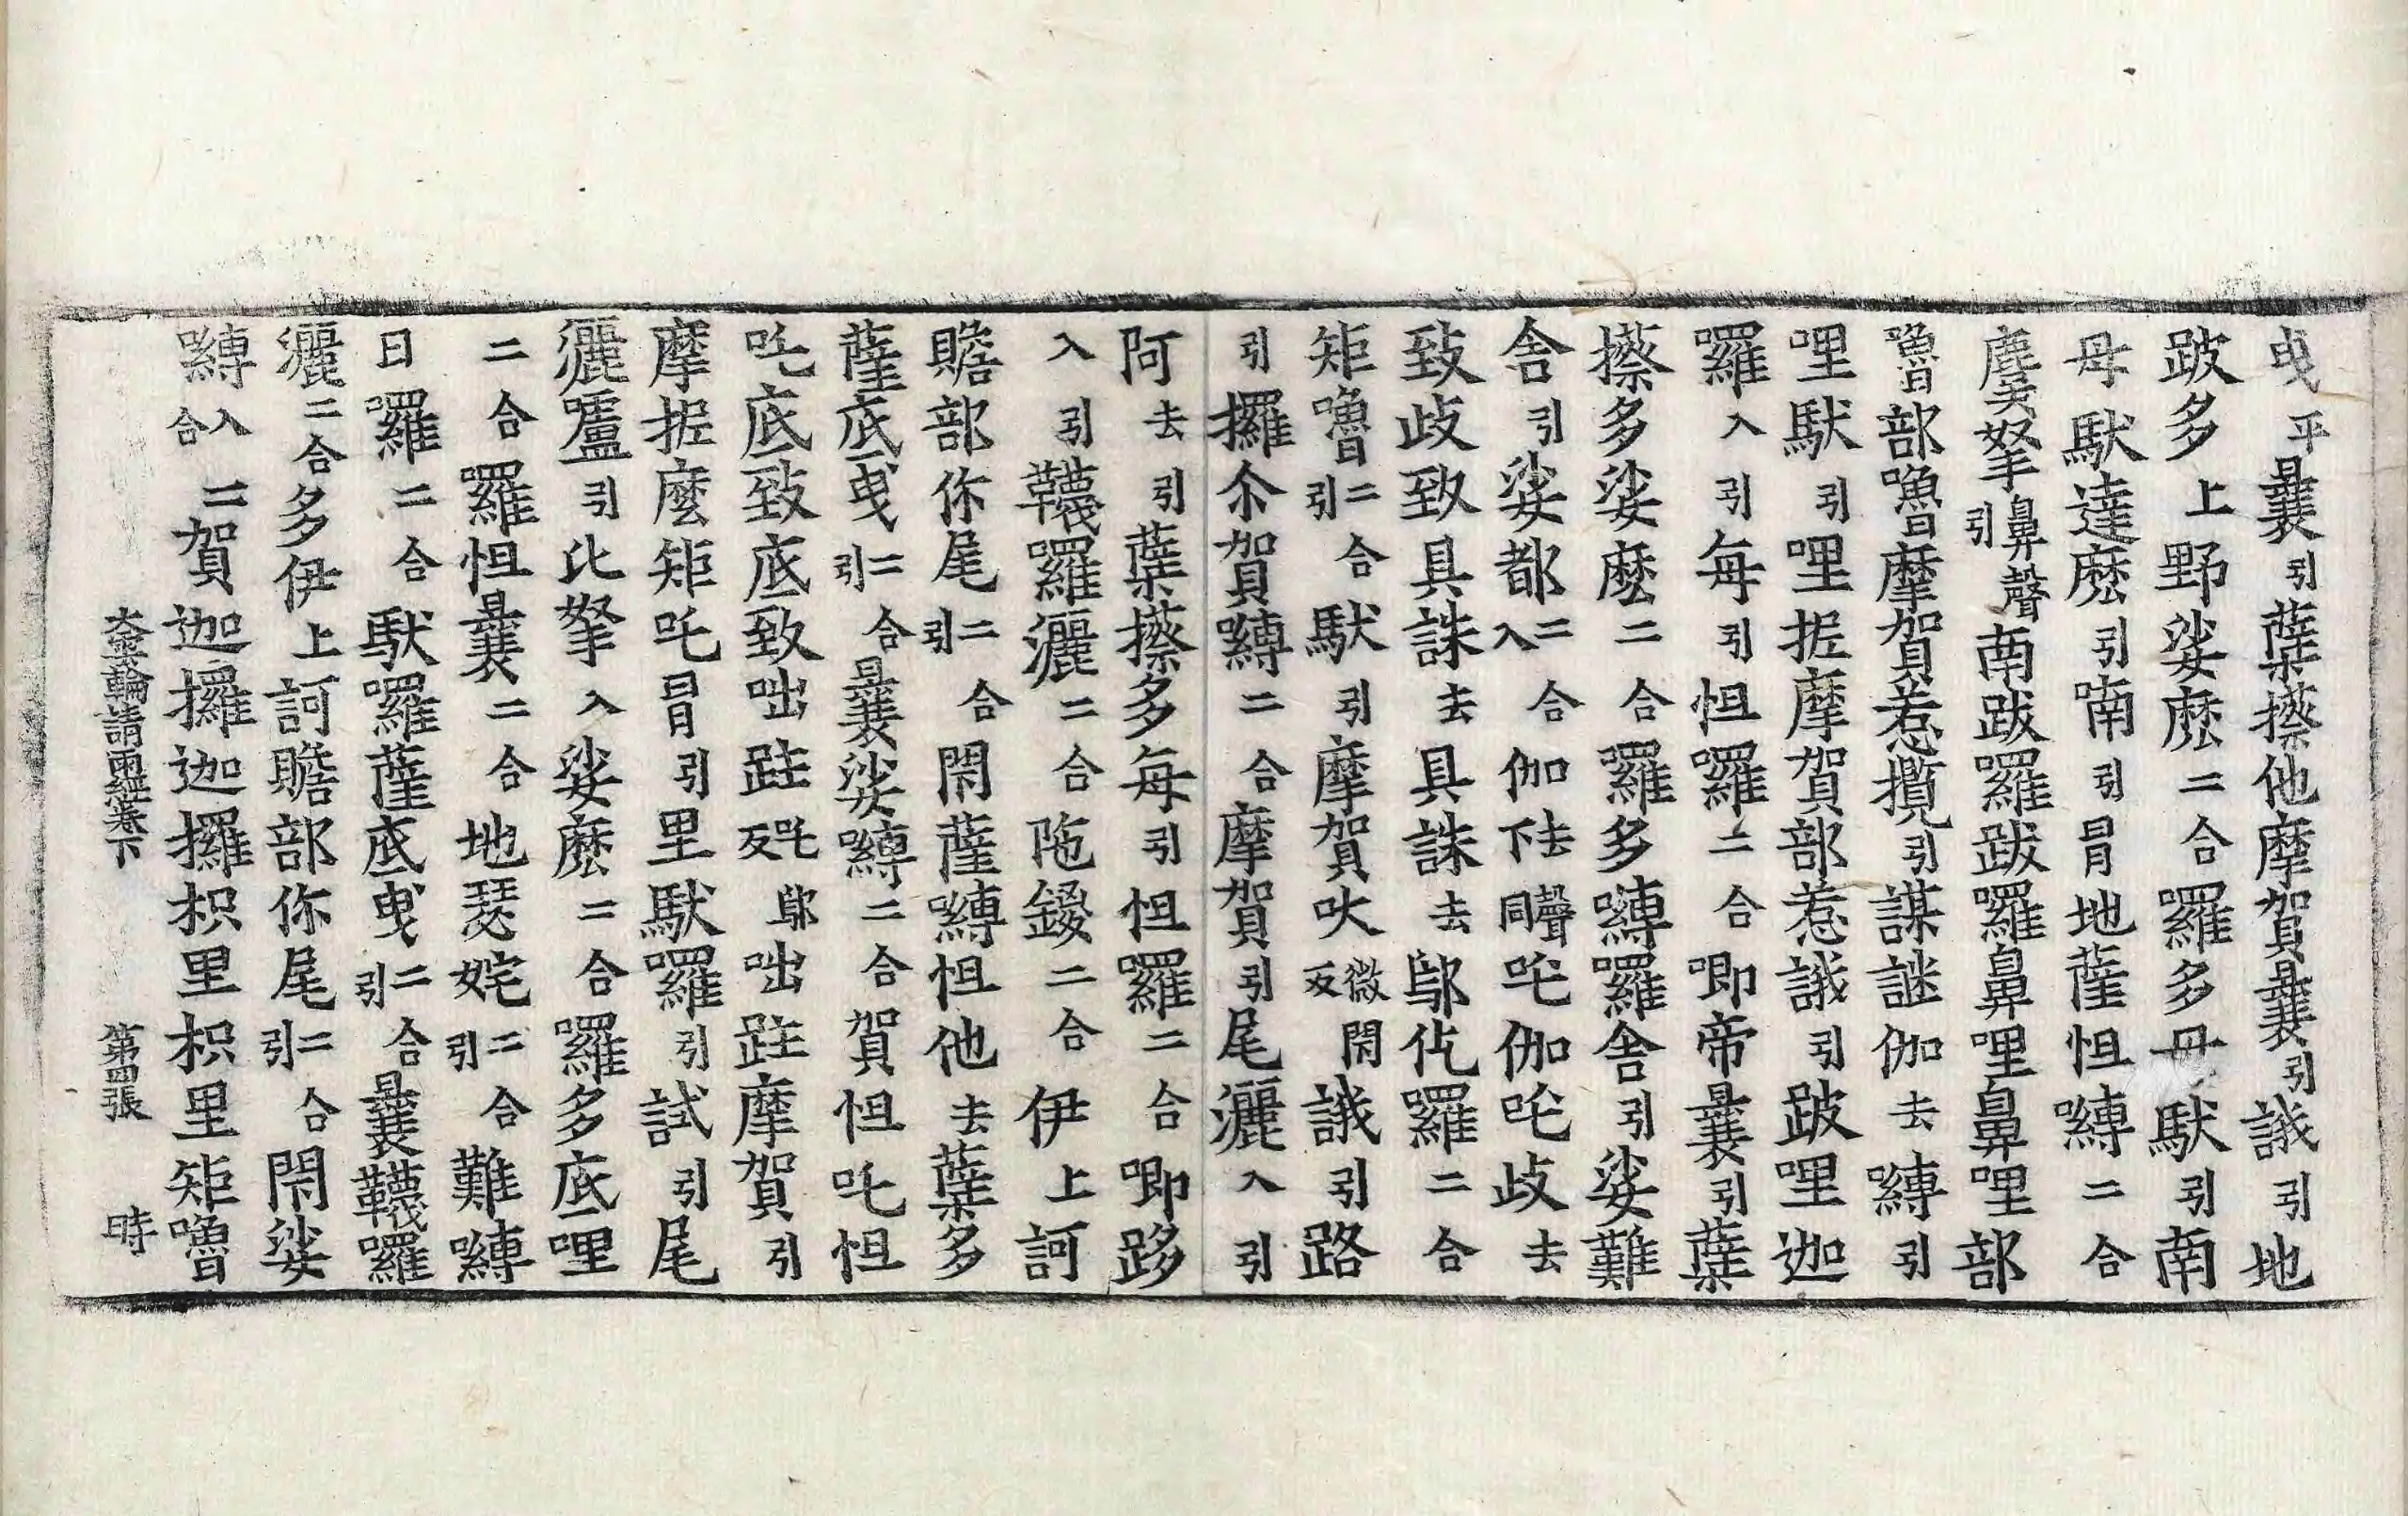 曳平曩引蘖搽他摩賀曩引誐引地
跛多上野娑麽二合羅多母馱引南
母馱達麽引喃引冐地薩怛嚩二合
麌拏鼻聲引南跋羅跋羅鼻哩鼻哩部
嚕部嚕摩賀惹攬引謀謎伽去嚩引
哩馱引哩抳摩賀部惹誐引跛哩迦
羅入引每引怛羅二合唧帝曩引蘖
搽多娑麽二合羅多嚩羅舍引娑難
舍引娑都二合入伽去聲下同吒伽吒歧去
致歧致具誅去具誅去鄔仡羅二合
矩嚕二合引馱引摩賀吠微閇反誐引路
引攞尒賀嚩二合摩賀引尾灑入引
阿去引蘖搽多每引怛羅二合唧跢
入引韈羅灑二合陁鍐二合伊上訶
贍部你尾二合引閇薩嚩怛他去蘖多
薩底曳二合引曩娑嚩二合賀怛吒怛
吒底致底致咄跓吒鄔反咄跓摩賀引
摩抳麽矩吒冐引里馱羅引試引尾
灑嚧引比拏入娑麽二合羅多底哩
二合羅怛曩二合地瑟姹二合引難嚩
日囉二合馱囉薩底曳二合引曩韈囉
灑二合多伊上訶贍部你尾二合引閇娑
嚩入二合賀迦攞迦攞枳里枳里矩嚕
大雲輪請雨經卷下　第四張　時